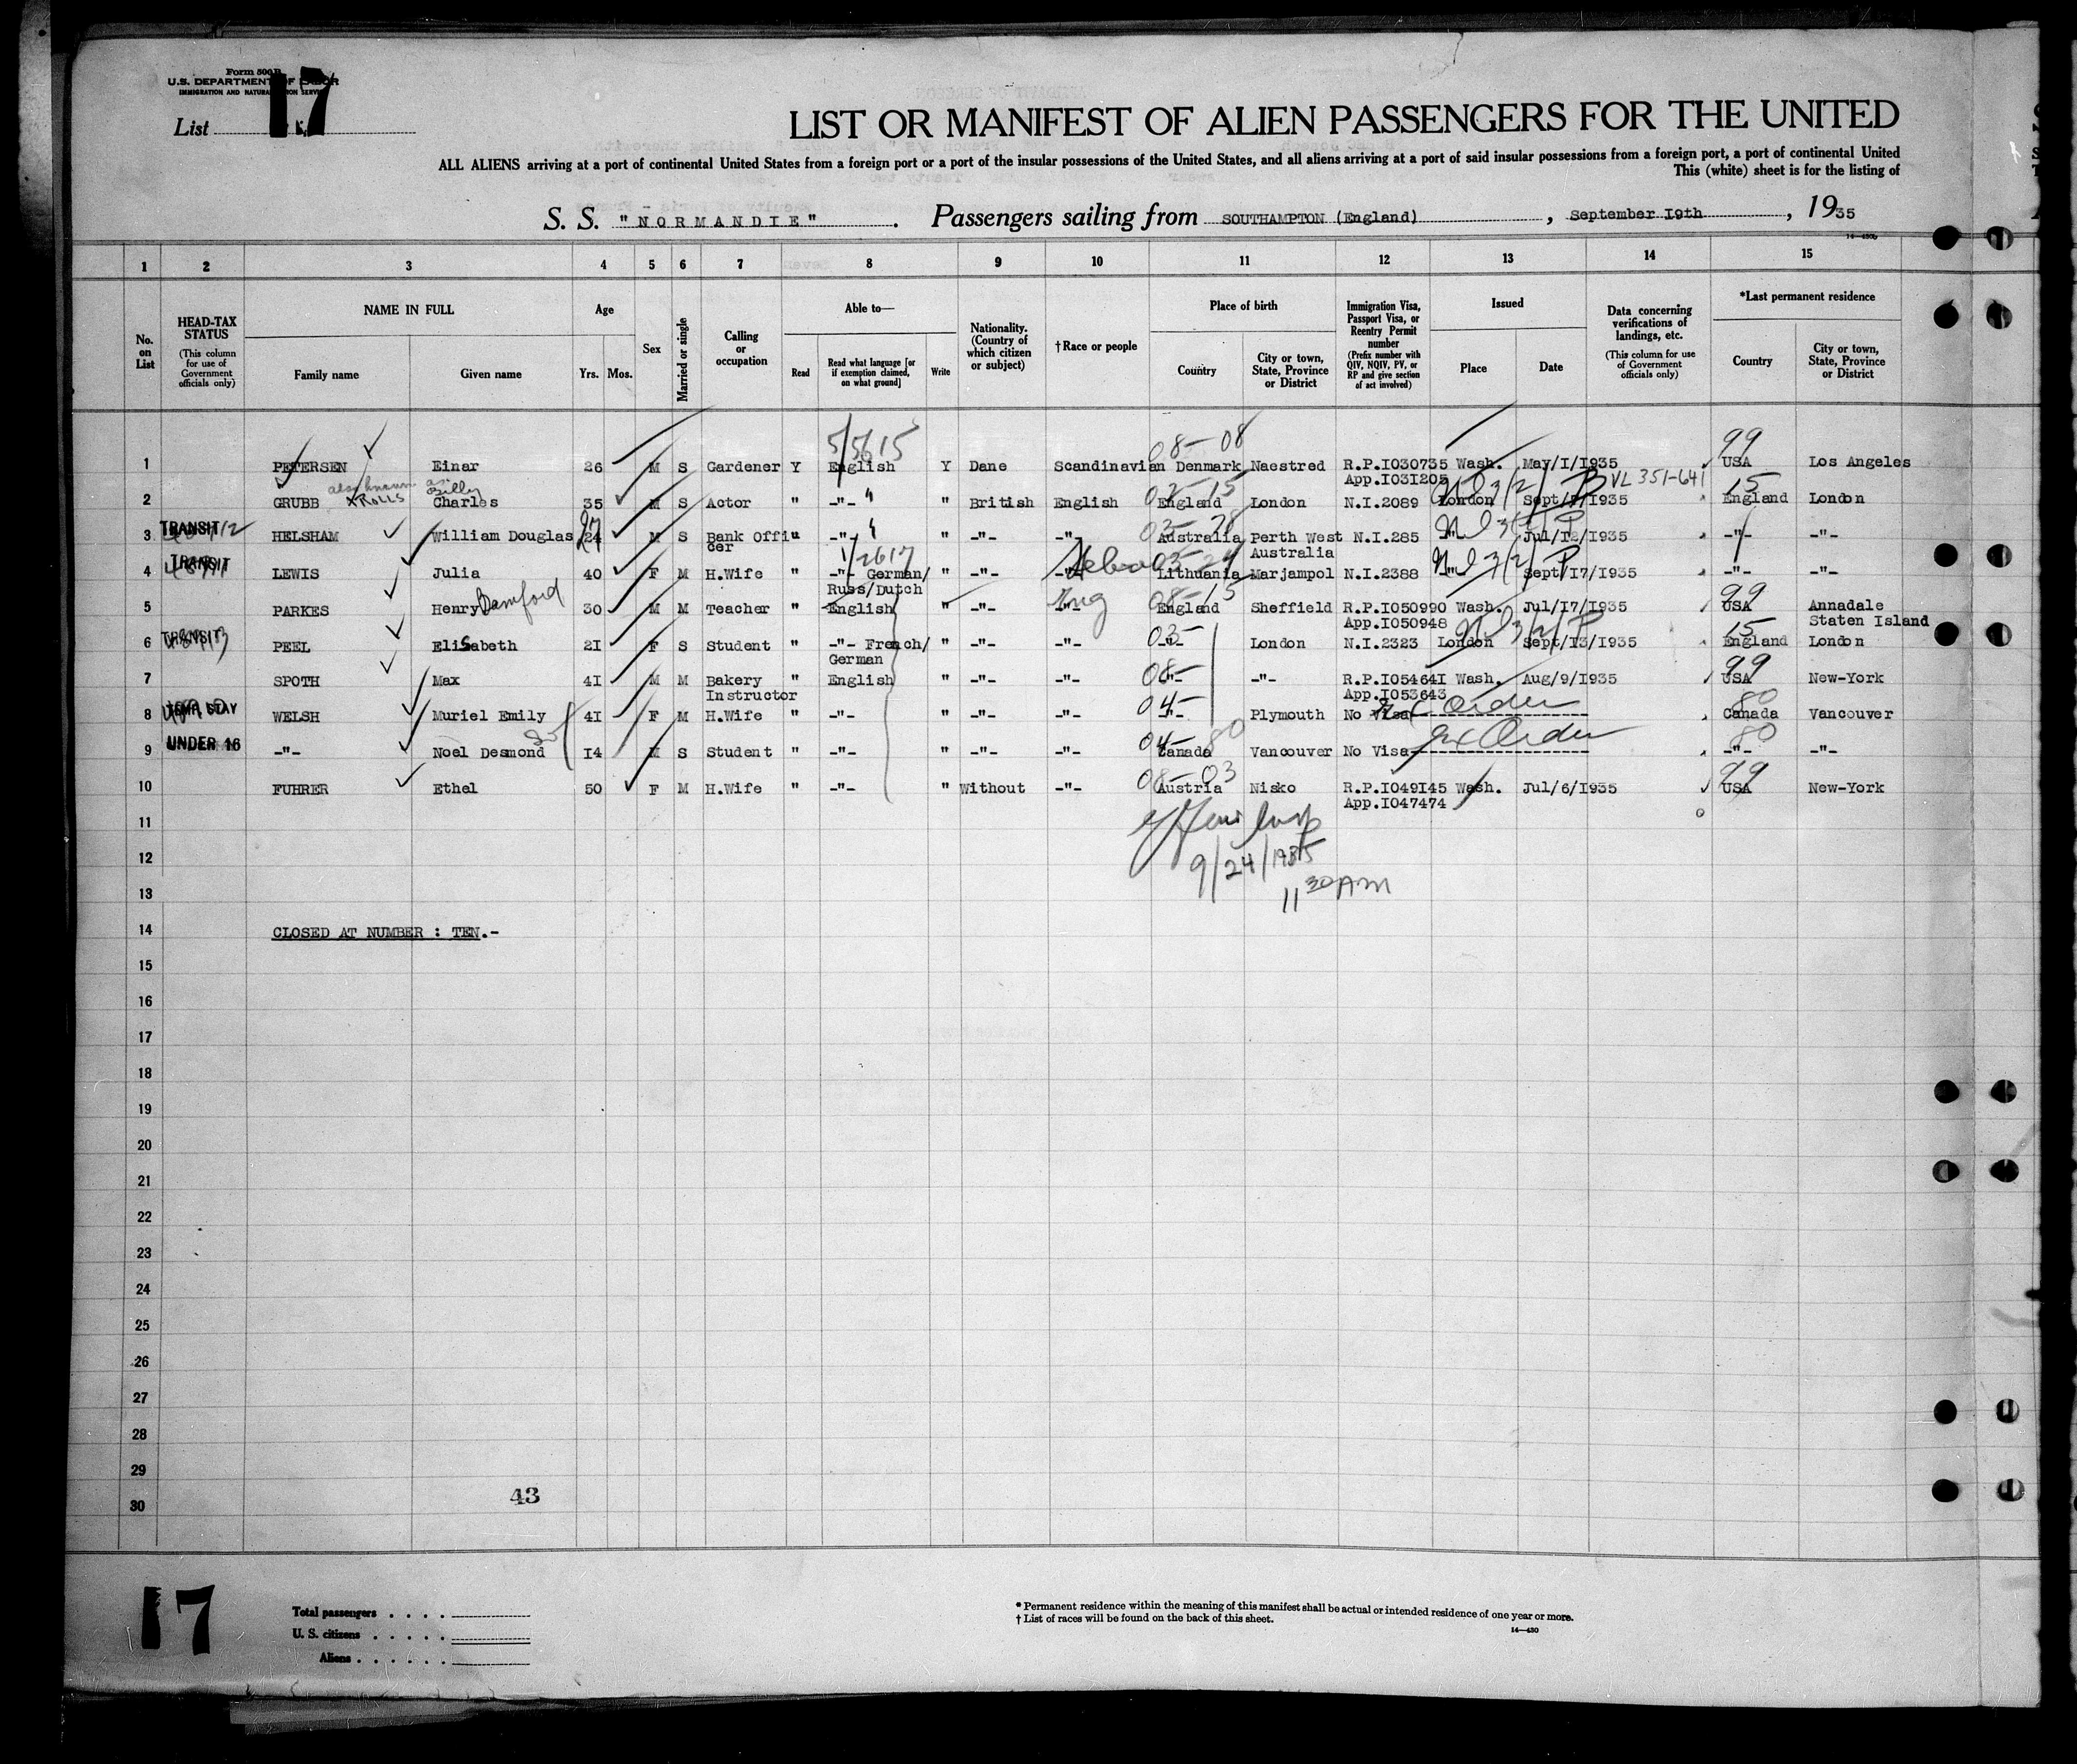 Form 500B
U.S. DEPARTMENT OF LABOR
IMMIGRATION AND NATURALIZATION SERVICE
17
List
LIST OR MANIFEST OF ALIEN PASSENGERS FOR THE UNITED
ALL ALIENS arriving at a port of continental United States from a foreign port or a port of the insular possessions of the United States, and all aliens arriving at a port of said insular possessions from a foreign port, a port of continental United
This (white) sheet is for the listing of
S. S. "NORMANDIE". Passengers sailing from SOUTHAMPTON (England), September I9th, 1935
14—430b
1 2 3 4 5 6 7 8 9 10 11 12 13 14 15
No. on List
HEAD-TAX STATUS (This column for use of Government officials only)
NAME IN FULL
Family name Given name
Age
Yrs. Mos.
Sex
Married or single
Calling or occupation
Able to—
Read Read what language [or if exemption claimed, on what ground] Write
Nationality. (Country of which citizen or subject)
†Race or people
Place of birth
Country City or town, State, Province or District
Immigration Visa, Passport Visa, or Reentry Permit number (Prefix number with QIV, NQIV, PV, or RP and give section of act involved)
Issued
Place Date
Data concerning verifications of landings, etc. (This column for use of Government officials only)
*Last permanent residence
Country City or town, State, Province or District
5/5615 08-08 99
1 PETERSEN Einar 26 M S Gardener Y English Y Dane Scandinavian Denmark Naestred R.P.I030735 Wash. May/I/I935 USA Los Angeles
App.I03I205
also known as Billy ROLLS VL 351-641 15
2 GRUBB Charles 35 M S Actor " -"- " " British English England London N.I.2089 London Sept/ /I935 England London
TRANSIT
3 HELSHAM William Douglas 24 27 M S Bank Offi " -"- " " -"- -"- Australia Perth West N.I.285 -"- Jul/I2/I935 -"- -"-
cer Australia
TRANSIT
4 LEWIS Julia 40 F M H.Wife " -"- German/ " -"- -"- Hebrew Lithuania Marjampol N.I.2388 -"- Sept/I7/I935 -"- -"-
Russ/Dutch
5 PARKES Henry Bamford 30 M M Teacher " English " -"- -"- Eng England Sheffield R.P.I050990 Wash. Jul/I7/I935 99 USA Annadale
App.I050948 Staten Island
TRANSIT
6 PEEL Elisabeth 2I F S Student " -"- French/ " -"- -"- 03- -"- London N.I.2323 London Sept/I3/I935 15 England London
German
7 SPOTH Max 4I M M Bakery " English " -"- -"- 08- -"- -"- R.P.I05464I Wash. Aug/9/I935 99 USA New-York
Instructor App.I053643
TEMP. STAY
8 WELSH Muriel Emily 4I F M H.Wife " -"- " -"- -"- 04- -"- Plymouth No Visa Ex Order 80 Canada Vancouver
UNDER 16
9 -"- Noel Desmond I4 M S Student " -"- " -"- -"- 04-80 Canada Vancouver No Visa Ex Order 80 -"- -"-
10 FUHRER Ethel 50 F M H.Wife " -"- " Without -"- 08-03 Austria Nisko R.P.I049I45 Wash. Jul/6/I935 99 USA New-York
App.I047474
11
12 9/24/1935
13 11 30 AM
14 CLOSED AT NUMBER : TEN.-
15
16
17
18
19
20
21
22
23
24
25
26
27
28
29
43
30
17
Total passengers
U. S. citizens
Aliens
* Permanent residence within the meaning of this manifest shall be actual or intended residence of one year or more.
† List of races will be found on the back of this sheet.
14—430